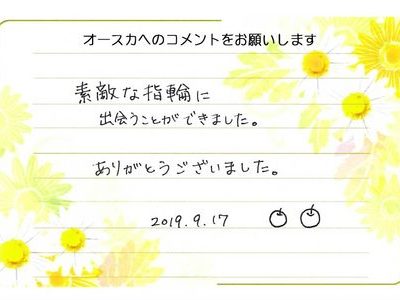 オースカへのコメントをお願いします
素敵な指輪に
出会うことができました。
ありがとうございました。
2019.9.17